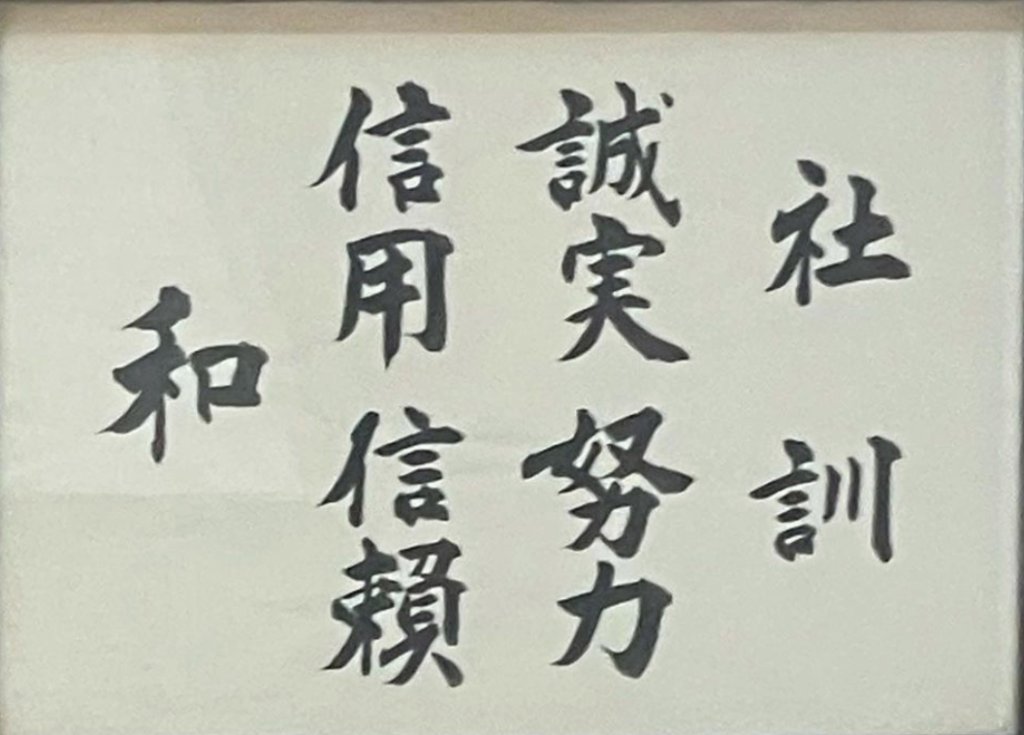 社訓
誠実 努力
信用 信頼
和